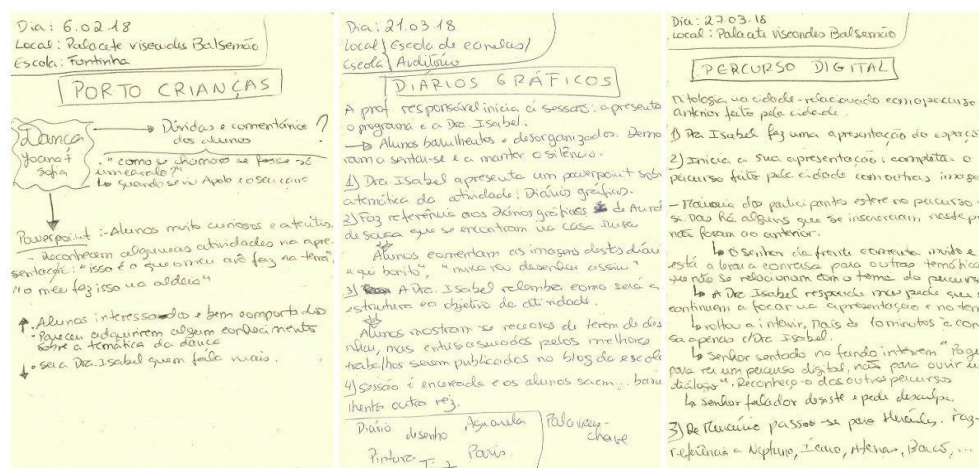 Dia: 6.02.18
Local: Palacete viscondes Balsemão
Escola: Fontinha
PORTO CRIANÇAS
Dança
Joana &
Sofia
Dúvidas e comentários ?
dos alunos
"como se chamaria se fosse só
um cavalo?"
quando se viu Apolo e o seu carro
Powerpoint: - Alunos muito curiosos e atentos.
- Reconhecem algumas atividades na apre
sentação: "isso é o que o meu avô faz na terra",
"o meu faz isso na aldeia"
Alunos interessados e bem comportados
- Parecem adquirirem algum conhecimento
sobre a temática da dança
seia Dra. Isabel quem fala mais.
Dia: 21.03.18
Local} Escola de canelas/
Escola} Auditório
DIÁRIOS GRÁFICOS
A prof. responsável inicia a sessão: apresenta
o programa e a Dra. Isabel.
Alunos barulhentos e desorganizados. Demo
ram a sentar-se e a manter o silêncio.
1) Dra. Isabel apresenta um powerpoint sobre
a temática da atividade: Diários gráficos.
2) Faz referência aos Diários gráficos de Auré
de Sousa que se encontram na casa
Alunos comentam as imagens destes diári
"que bonito", "nunca vou desenhar assim"
3) A Dra. Isabel relembra como será a
estrutura e o objetivo da atividade.
Alunos mostram-se receosos de terem de dese
nhar, mas entusiasmados pelos melhores
trabalhos serem publicados no blog da escola
4) Sessão é encerrada e os alunos saem... baru
lhentos outra vez.
Diário desenho Aguarela Palavras-
chave
Pintura Paris
Dia: 27.03.18
Local: Palacete viscondes Balsemão
PERCURSO DIGITAL
Mitologia na cidade - relacionado com o percurso
anterior feito pela cidade.
1) Dra. Isabel fez uma apresentação do espaço
2) Inicia a sua apresentação: completa o
percurso feito pela cidade com outras image
- Maioria dos participantes esteve no percurso
Há alguns que se inscreveram neste
não foram ao anterior.
O senhor da frente comenta muito e
está a levar a conversa para outras temáticas
que não se relacionam com o tema do percurso
A Dra Isabel responde mas pede que
continuem a focar na apresentação e no tem
voltou a intervir, mais de 10 minutos a conver
sa apenas c/ Dra Isabel.
Senhor sentado no fundo interveio "Paguei
para ver um percurso digital, não para ouvir um
diálogo". Reconheço-o dos outros percursos
senhor falador desiste e pede desculpa.
3) De Mercúrio passou-se para Hércules. Faz-
referência a Neptuno, Ícaro, Atenas, Baco, ...